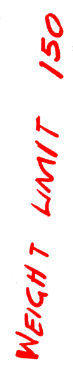 WEIGHT LIMIT 150